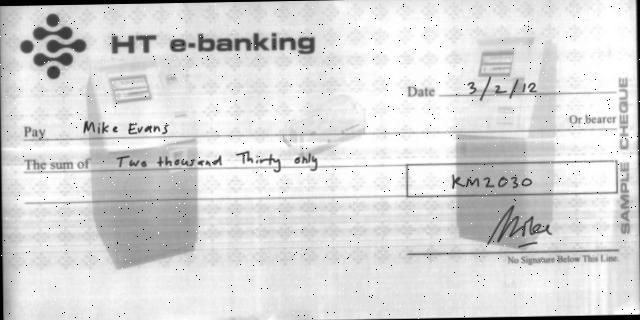 HT e-banking
Date 3/2/12
Pay Mike Evans Or bearer
The sum of Two thousand Thirty only
RM2030
Mike
No Signature Below This Line.
SAMPLE CHEQUE